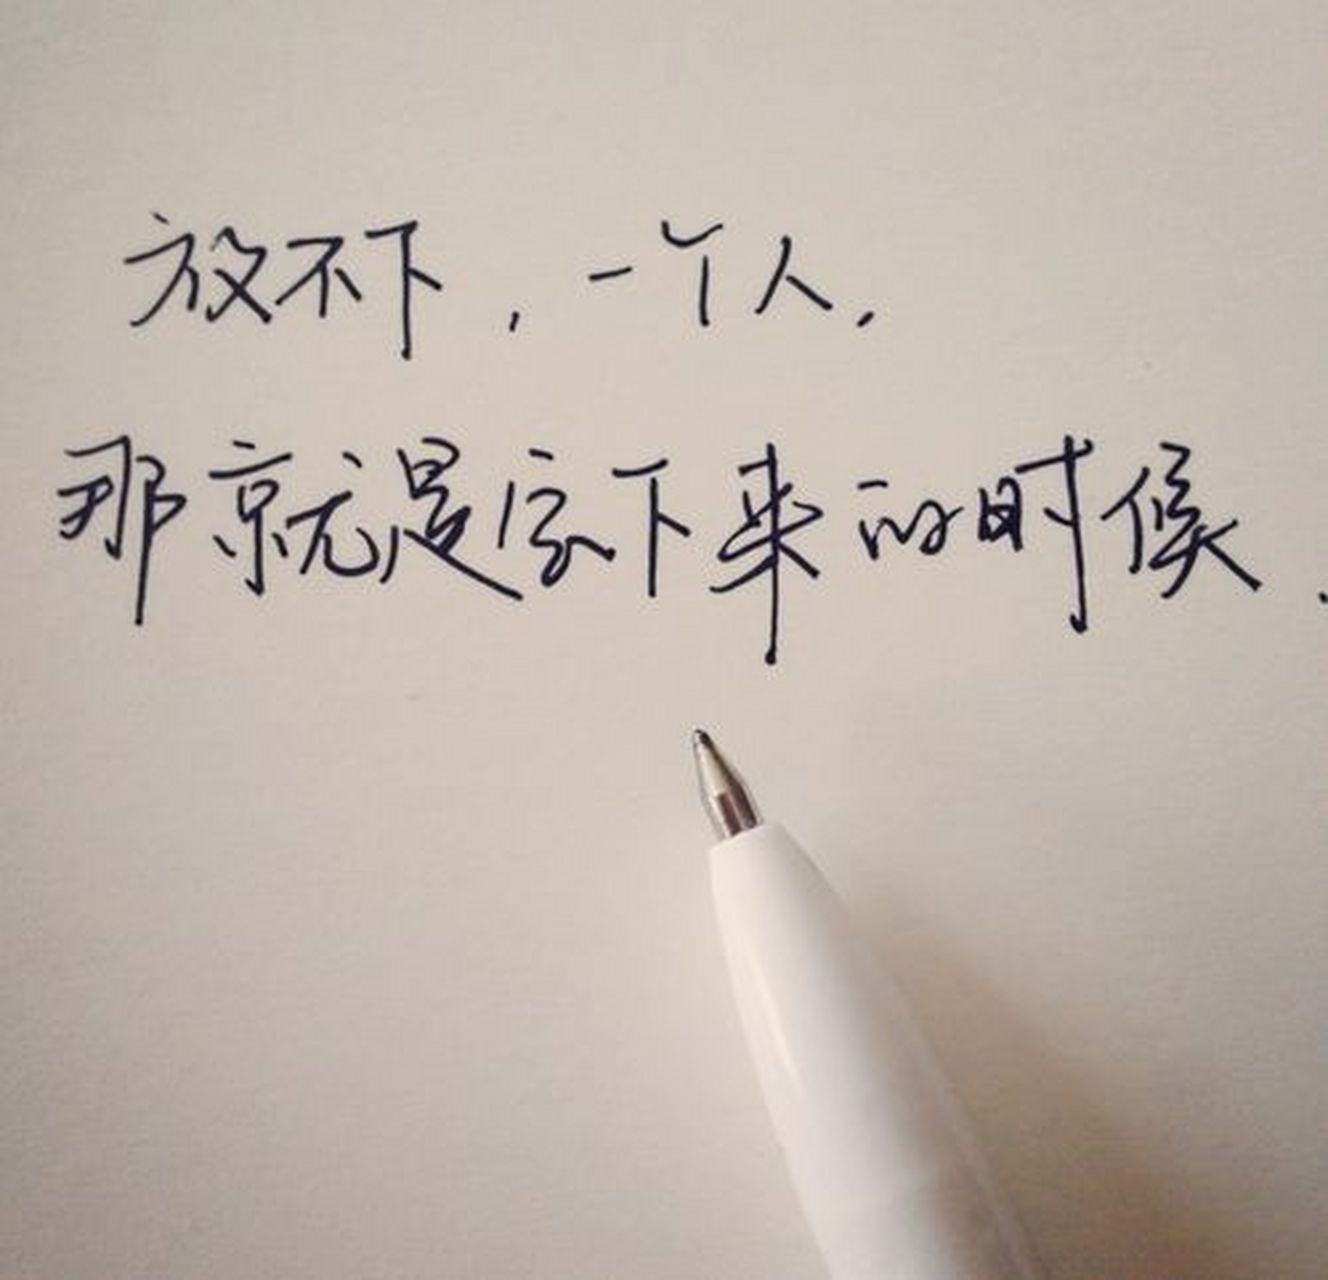 放不下，一个人，
那就是下来的时候.